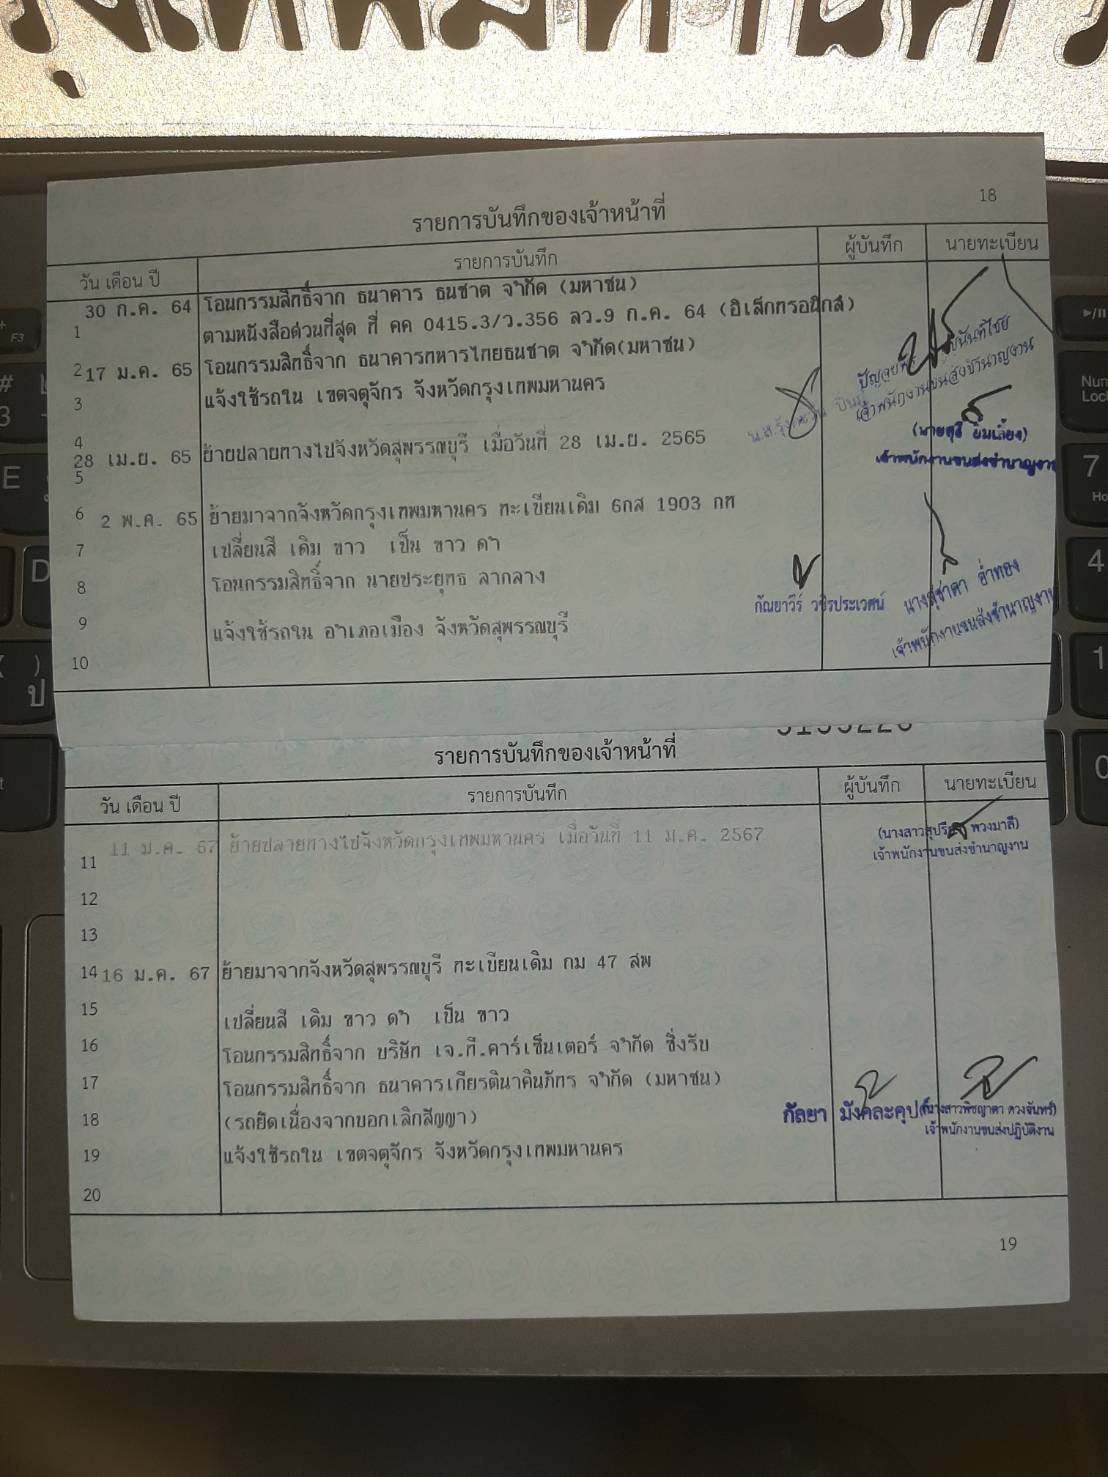 18
รายการบันทึกของเจ้าหน้าที่
วัน เดือน ปี รายการบันทึก ผู้บันทึก นายทะเบียน
30 ก.ค. 64 โอนกรรมสิทธิ์จาก ธนาคาร ธนชาต จำกัด (มหาชน)
1 ตามหนังสือด่วนที่สุด ที่ คค 0415.3/ว.356 ลว.9 ก.ค. 64 (อิเล็กทรอนิกส์)
2 17 ม.ค. 65 โอนกรรมสิทธิ์จาก ธนาคารทหารไทยธนชาต จำกัด(มหาชน)
3 แจ้งใช้รถใน เขตจตุจักร จังหวัดกรุงเทพมหานคร
เจ้าพนักงานขนส่งชำนาญงาน
4
28 เม.ย. 65 ย้ายปลายทางไปจังหวัดสุพรรณบุรี เมื่อวันที่ 28 เม.ย. 2565
เจ้าพนักงานขนส่งชำนาญงาน
5
6 2 พ.ค. 65 ย้ายมาจากจังหวัดกรุงเทพมหานคร ทะเบียนเดิม 6กส 1903 กท
7 เปลี่ยนสี เดิม ขาว เป็น ขาว ดำ
8 โอนกรรมสิทธิ์จาก นายประยุทธ ลากลาง
กัณยาวีร์ วชิรประเวศน์ นางสุชาดา อ่ำทอง
เจ้าพนักงานขนส่งชำนาญงาน
9 แจ้งใช้รถใน อำเภอเมือง จังหวัดสุพรรณบุรี
10
รายการบันทึกของเจ้าหน้าที่
วัน เดือน ปี รายการบันทึก ผู้บันทึก นายทะเบียน
11 ม.ค. 67 ย้ายปลายทางไปจังหวัดกรุงเทพมหานคร เมื่อวันที่ 11 ม.ค. 2567
(นางสาวสุปรียา พวงมาลี)
เจ้าพนักงานขนส่งชำนาญงาน
11
12
13
14 16 ม.ค. 67 ย้ายมาจากจังหวัดสุพรรณบุรี ทะเบียนเดิม ถม 47 สพ
15 เปลี่ยนสี เดิม ขาว ดำ เป็น ขาว
16 โอนกรรมสิทธิ์จาก บริษัท เจ.ที.คาร์เซ็นเตอร์ จำกัด ซึ่งรับ
17 โอนกรรมสิทธิ์จาก ธนาคารเกียรตินาคินภัทร จำกัด (มหาชน)
18 (รถยึดเนื่องจากบอกเลิกสัญญา)
กัลยา มังคละคุปต์ (นางสาวพิชญาดา ดวงจันทร์)
เจ้าพนักงานขนส่งปฏิบัติงาน
19 แจ้งใช้รถใน เขตจตุจักร จังหวัดกรุงเทพมหานคร
20
19